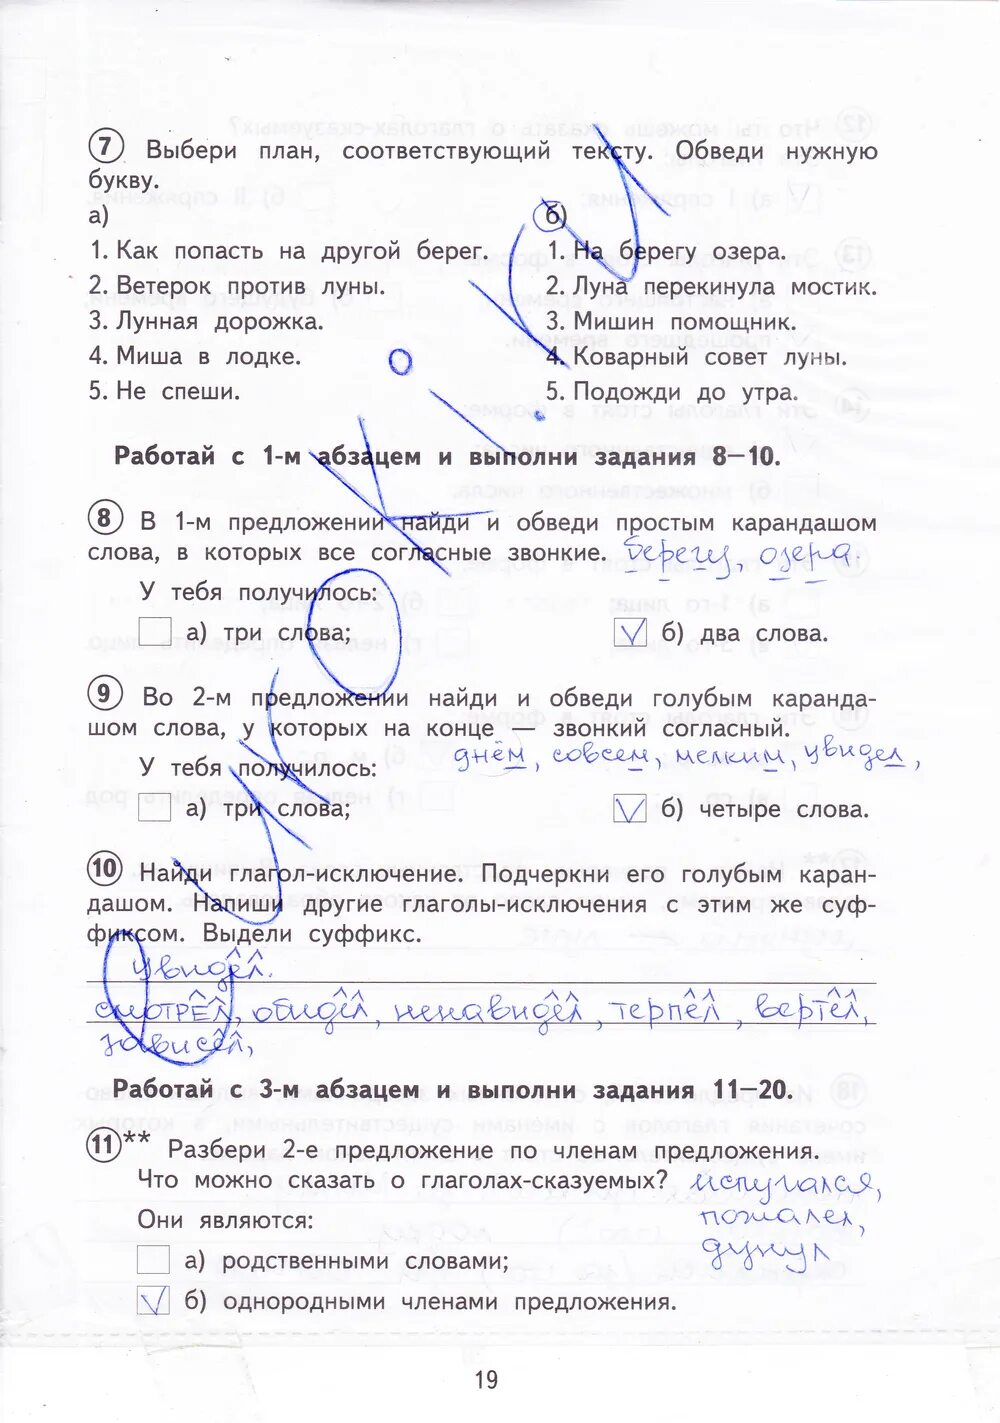 7 Выбери план, соответствующий тексту. Обведи нужную
букву.
а)
1. Как попасть на другой берег.
2. Ветерок против луны.
3. Лунная дорожка.
4. Миша в лодке.
5. Не спеши.
б)
1. На берегу озера.
2. Луна перекинула мостик.
3. Мишин помощник.
4. Коварный совет луны.
5. Подожди до утра.
Работай с 1-м абзацем и выполни задания 8—10.
8 В 1-м предложении найди и обведи простым карандашом
слова, в которых все согласные звонкие. берегу, озера.
У тебя получилось:
а) три слова;
б) два слова.
9 Во 2-м предложении найди и обведи голубым каранда-
шом слова, у которых на конце — звонкий согласный.
У тебя получилось: днём, совсем, мелким, увидел,
а) три слова;
б) четыре слова.
10 Найди глагол-исключение. Подчеркни его голубым каран-
дашом. Напиши другие глаголы-исключения с этим же суф-
фиксом. Выдели суффикс.
увидел.
смотрел, обидел, ненавидел, терпел, вертел,
зависел,
Работай с 3-м абзацем и выполни задания 11—20.
11** Разбери 2-е предложение по членам предложения.
Что можно сказать о глаголах-сказуемых? испугался,
Они являются: пожалел,
дунул
а) родственными словами;
б) однородными членами предложения.
19
uroki.ru